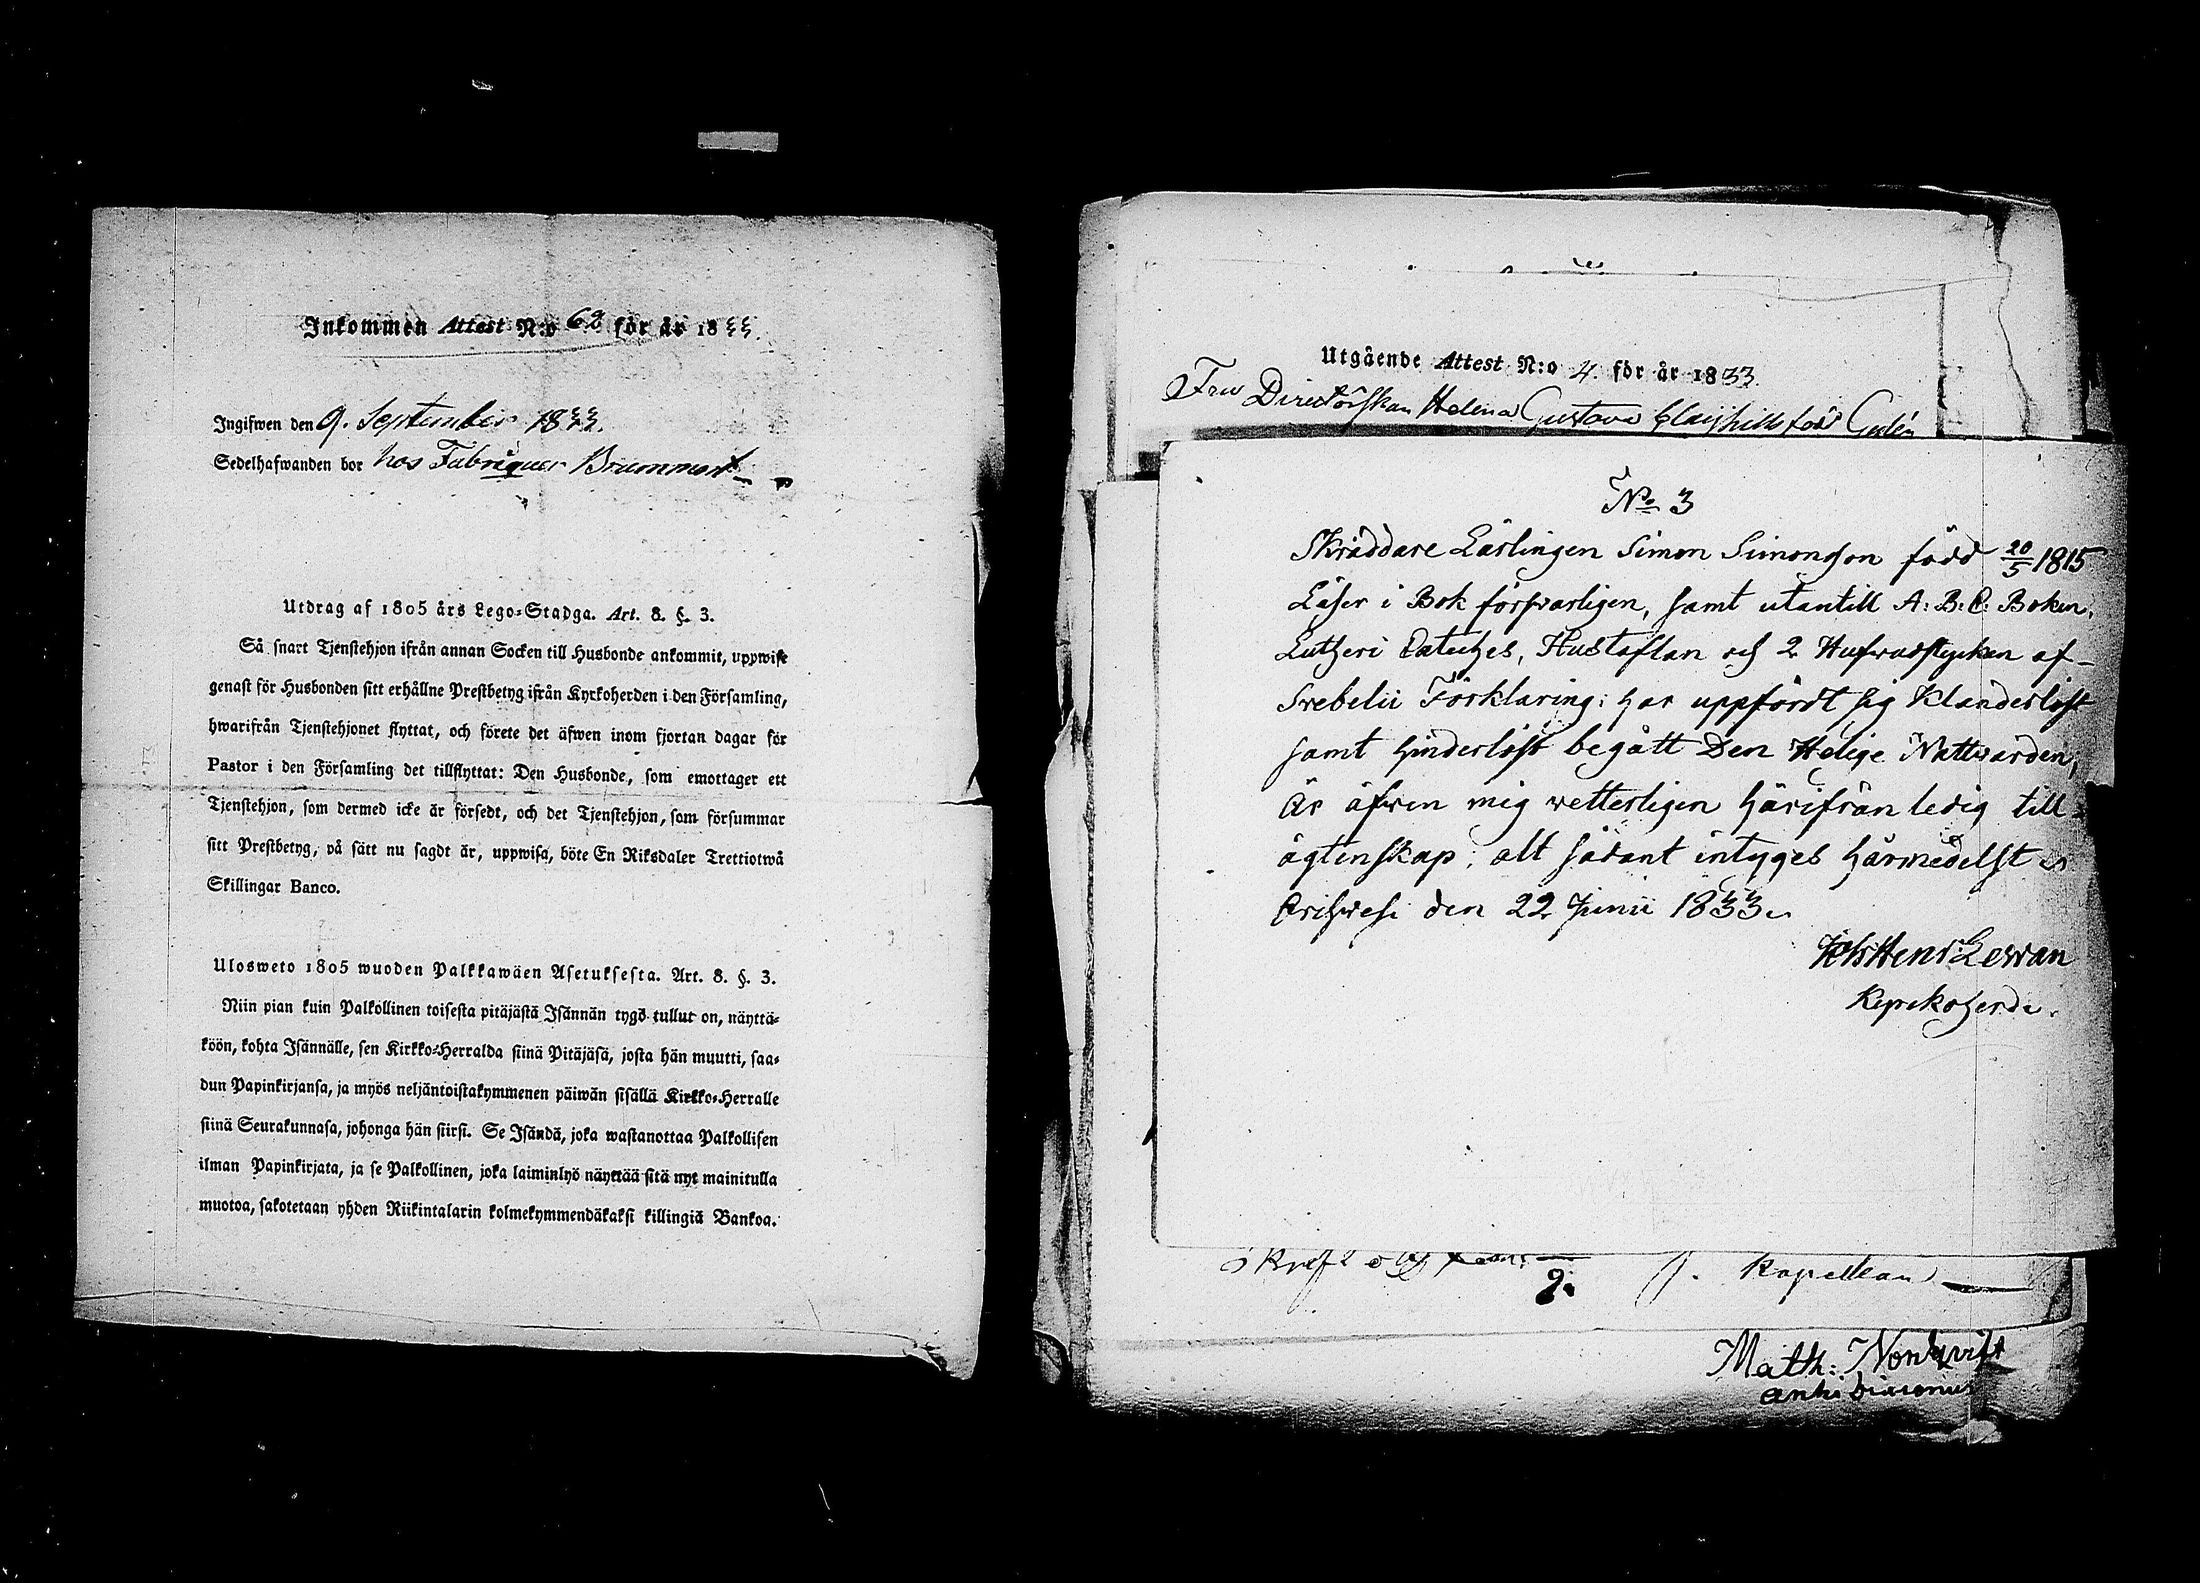 Inkommen Attest N:o 62 för år 1833.
Ingifwen den 9. September 1833.
Sedelhafwanden bor hos Fabriquer Brummert
Utdrag af 1805 års Lego-Stadga. Art. 8. §. 3.
Så snart Tjenstehjon ifrån annan Socken till Husbonde ankommit, uppwise
genast för Husbonden sitt erhållne Prestbetyg ifrån Kyrkoherden i den Församling,
hwarifrån Tjenstehjonet flyttat, och förete det äfwen inom fjortan dagar för
Pastor i den Församling det tillflyttat: Den Husbonde, som emottager ett
Tjenstehjon, som dermed icke är försedt, och det Tjenstehjon, som försummar
sitt Prestbetyg, på sätt nu sagdt är, uppwisa, böte En Riksdaler Trettiotwå
Skillingar Banco.
Ulosweto 1805 wuoden Palkkawäen Asetuksesta. Art. 8. §. 3.
Niin pian kuin Palkollinen toisesta pitäjästä Isännän tygö tullut on, näyttä-
köön, kohta Isännälle, sen Kirkko-Herralda siinä Pitäjäsä, josta hän muutti, saa-
dun Papinkirjansa, ja myös neljäntoistakymmenen päiwän sisällä Kirkko-Herralle
siinä Seurakunnasa, johonga hän siirsi. Se Isändä, joka wastanottaa Palkollisen
ilman Papinkirjata, ja se Palkollinen, joka laiminlyö näyttää sitä nyt mainitulla
muotoa, sakotetaan yhden Riikintalarin kolmekymmendäkaksi killingiä Bankoa.
Utgående Attest N:o 4. för år 1833.
Fru Directörskan Helena Gustava Clayhills född
No 3
Skräddare Lärlingen Simon Simonsson född 20/5 1815
Läser i Bok försvarligen, samt utantill A: B: C: Boken,
Lutheri Cateches, Hustaflan och 2 Hufvudstycken af
Svebelii Förklaring; har uppfördt sig klanderlöst
samt hinderlöst begått Den Helige Nattvarden,
Är äfven mig vetterligen härifrån ledig till
ägtenskap; alt sådant intyges härmedelst
Orihvesi den 22 Junii 1833.
Joh Henr Lewan
Kyrkoherde.
2.
Kapellan
Math: Nordqvist